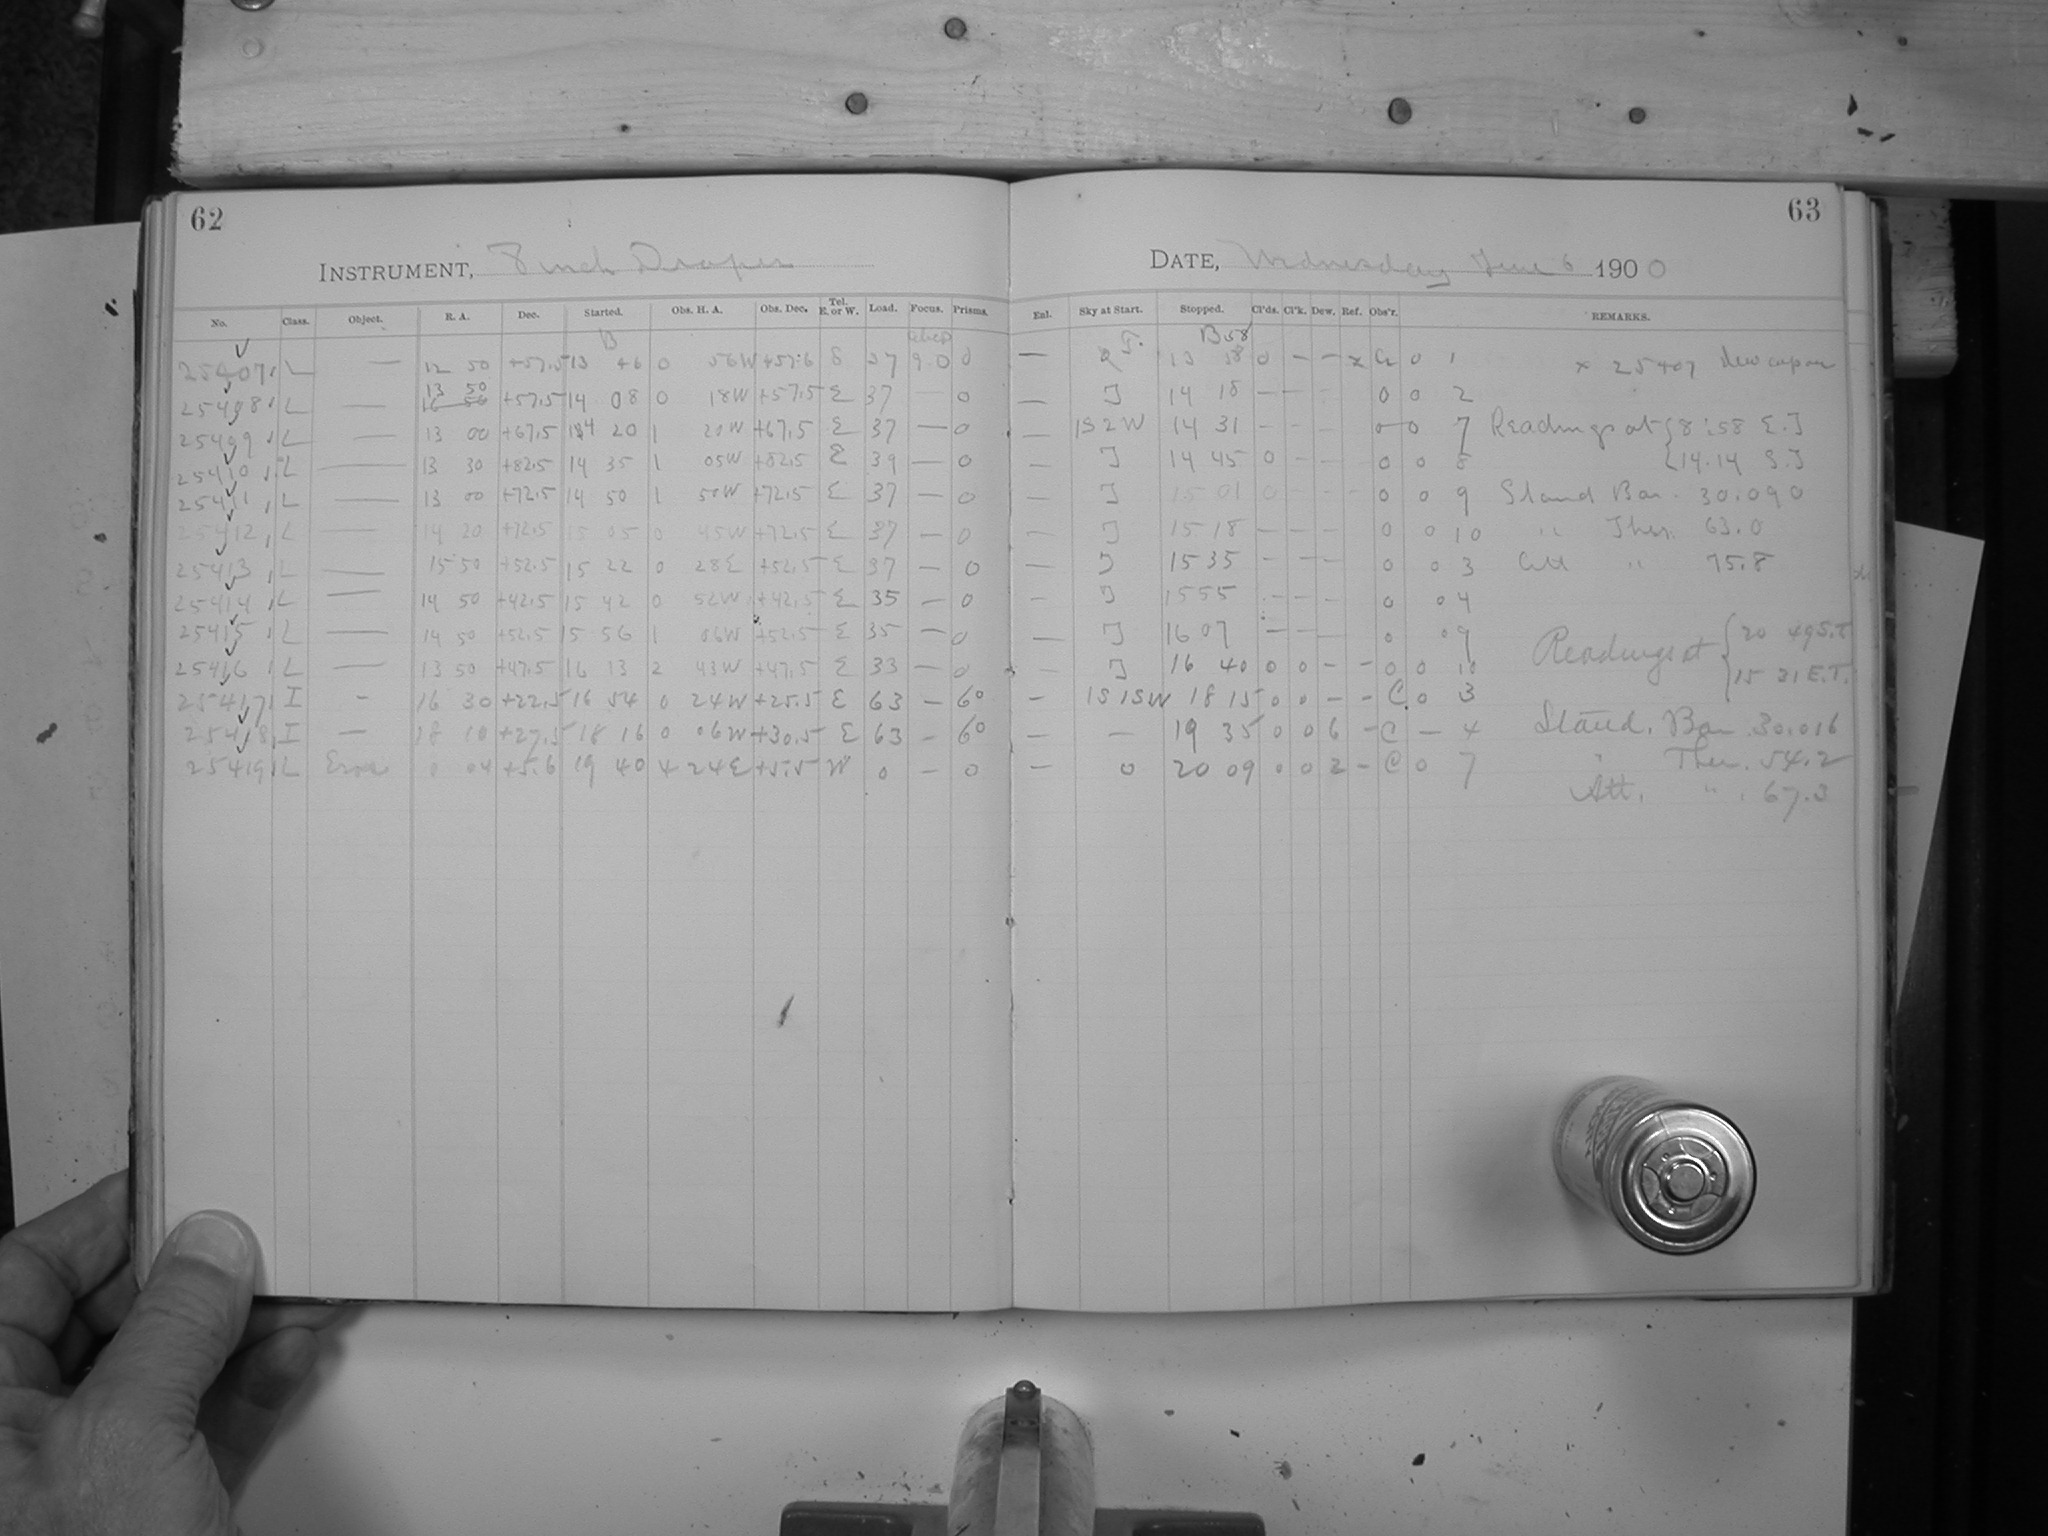 62
INSTRUMENT, 8 inch Draper
No. Class. Object. R. A. Dec. Started. Obs. H. A. Obs. Dec. Tel. E. or W. Load. Focus. Prisms.
B
25407 L — 12 50 +57.5 13 46 0 56W +57.6 E 37 9.0 0
13 50
25408 L — +57.5 14 08 0 18W +57.5 E 37 — 0
25409 L — 13 00 +67.5 14 20 1 20W +67.5 E 37 — 0
25410 L — 13 30 +82.5 14 35 1 05W +82.5 E 39 — 0
25411 L — 13 00 +72.5 14 50 1 50W +72.5 E 37 — 0
25412 L — 14 20 +72.5 15 05 0 45W +72.5 E 37 — 0
25413 L — 15 50 +52.5 15 22 0 28E +52.5 E 37 — 0
25414 L — 14 50 +42.5 15 42 0 52W +42.5 E 35 — 0
25415 L — 14 50 +52.5 15 56 1 06W +52.5 E 35 — 0
25416 L — 13 50 +47.5 16 13 2 43W +47.5 E 33 — 0
25417 I — 16 30 +22.5 16 54 0 24W +25.5 E 63 — 6°
25418 I — 18 10 +27.5 18 16 0 06W +30.5 E 63 — 6°
25419 L Eros 0 04 +5.6 19 40 4 24E +5.5 W 0 — 0
63
DATE, Wednesday June 6 1900
Enl. Sky at Start. Stopped. Cl'ds. Cl'k. Dew. Ref. Obs'r. REMARKS.
B 58
— 13 58 0 — — x 0 1 x 25407
— J 14 18 — — 0 0 2
— 1S2W 14 31 — — — 0 0 7 Readings at { 8:58 E.J
— J 14 45 0 — — 0 0 8 { 14.14 S.J
— J 15 01 0 — — — 0 0 9 Stand Bar. 30.090
— J 15 18 — — — 0 0 10 " Ther. 63.0
J 15 35 — — — 0 0 3 Att " 75.8
J 15 55 — — — 0 0 4
— J 16 07 — — — 0 0 9 Readings at { 20 49 S.T.
— J 16 40 0 0 — — 0 0 10 15 31 E.T.
— 1S1SW 18 15 0 0 — — C 0 3
— — 19 35 0 0 6 — C — 4 Stand. Bar. 30.016
— 0 20 09 0 0 2 — C 0 7 " Ther. 54.2
Att. " . 67.3